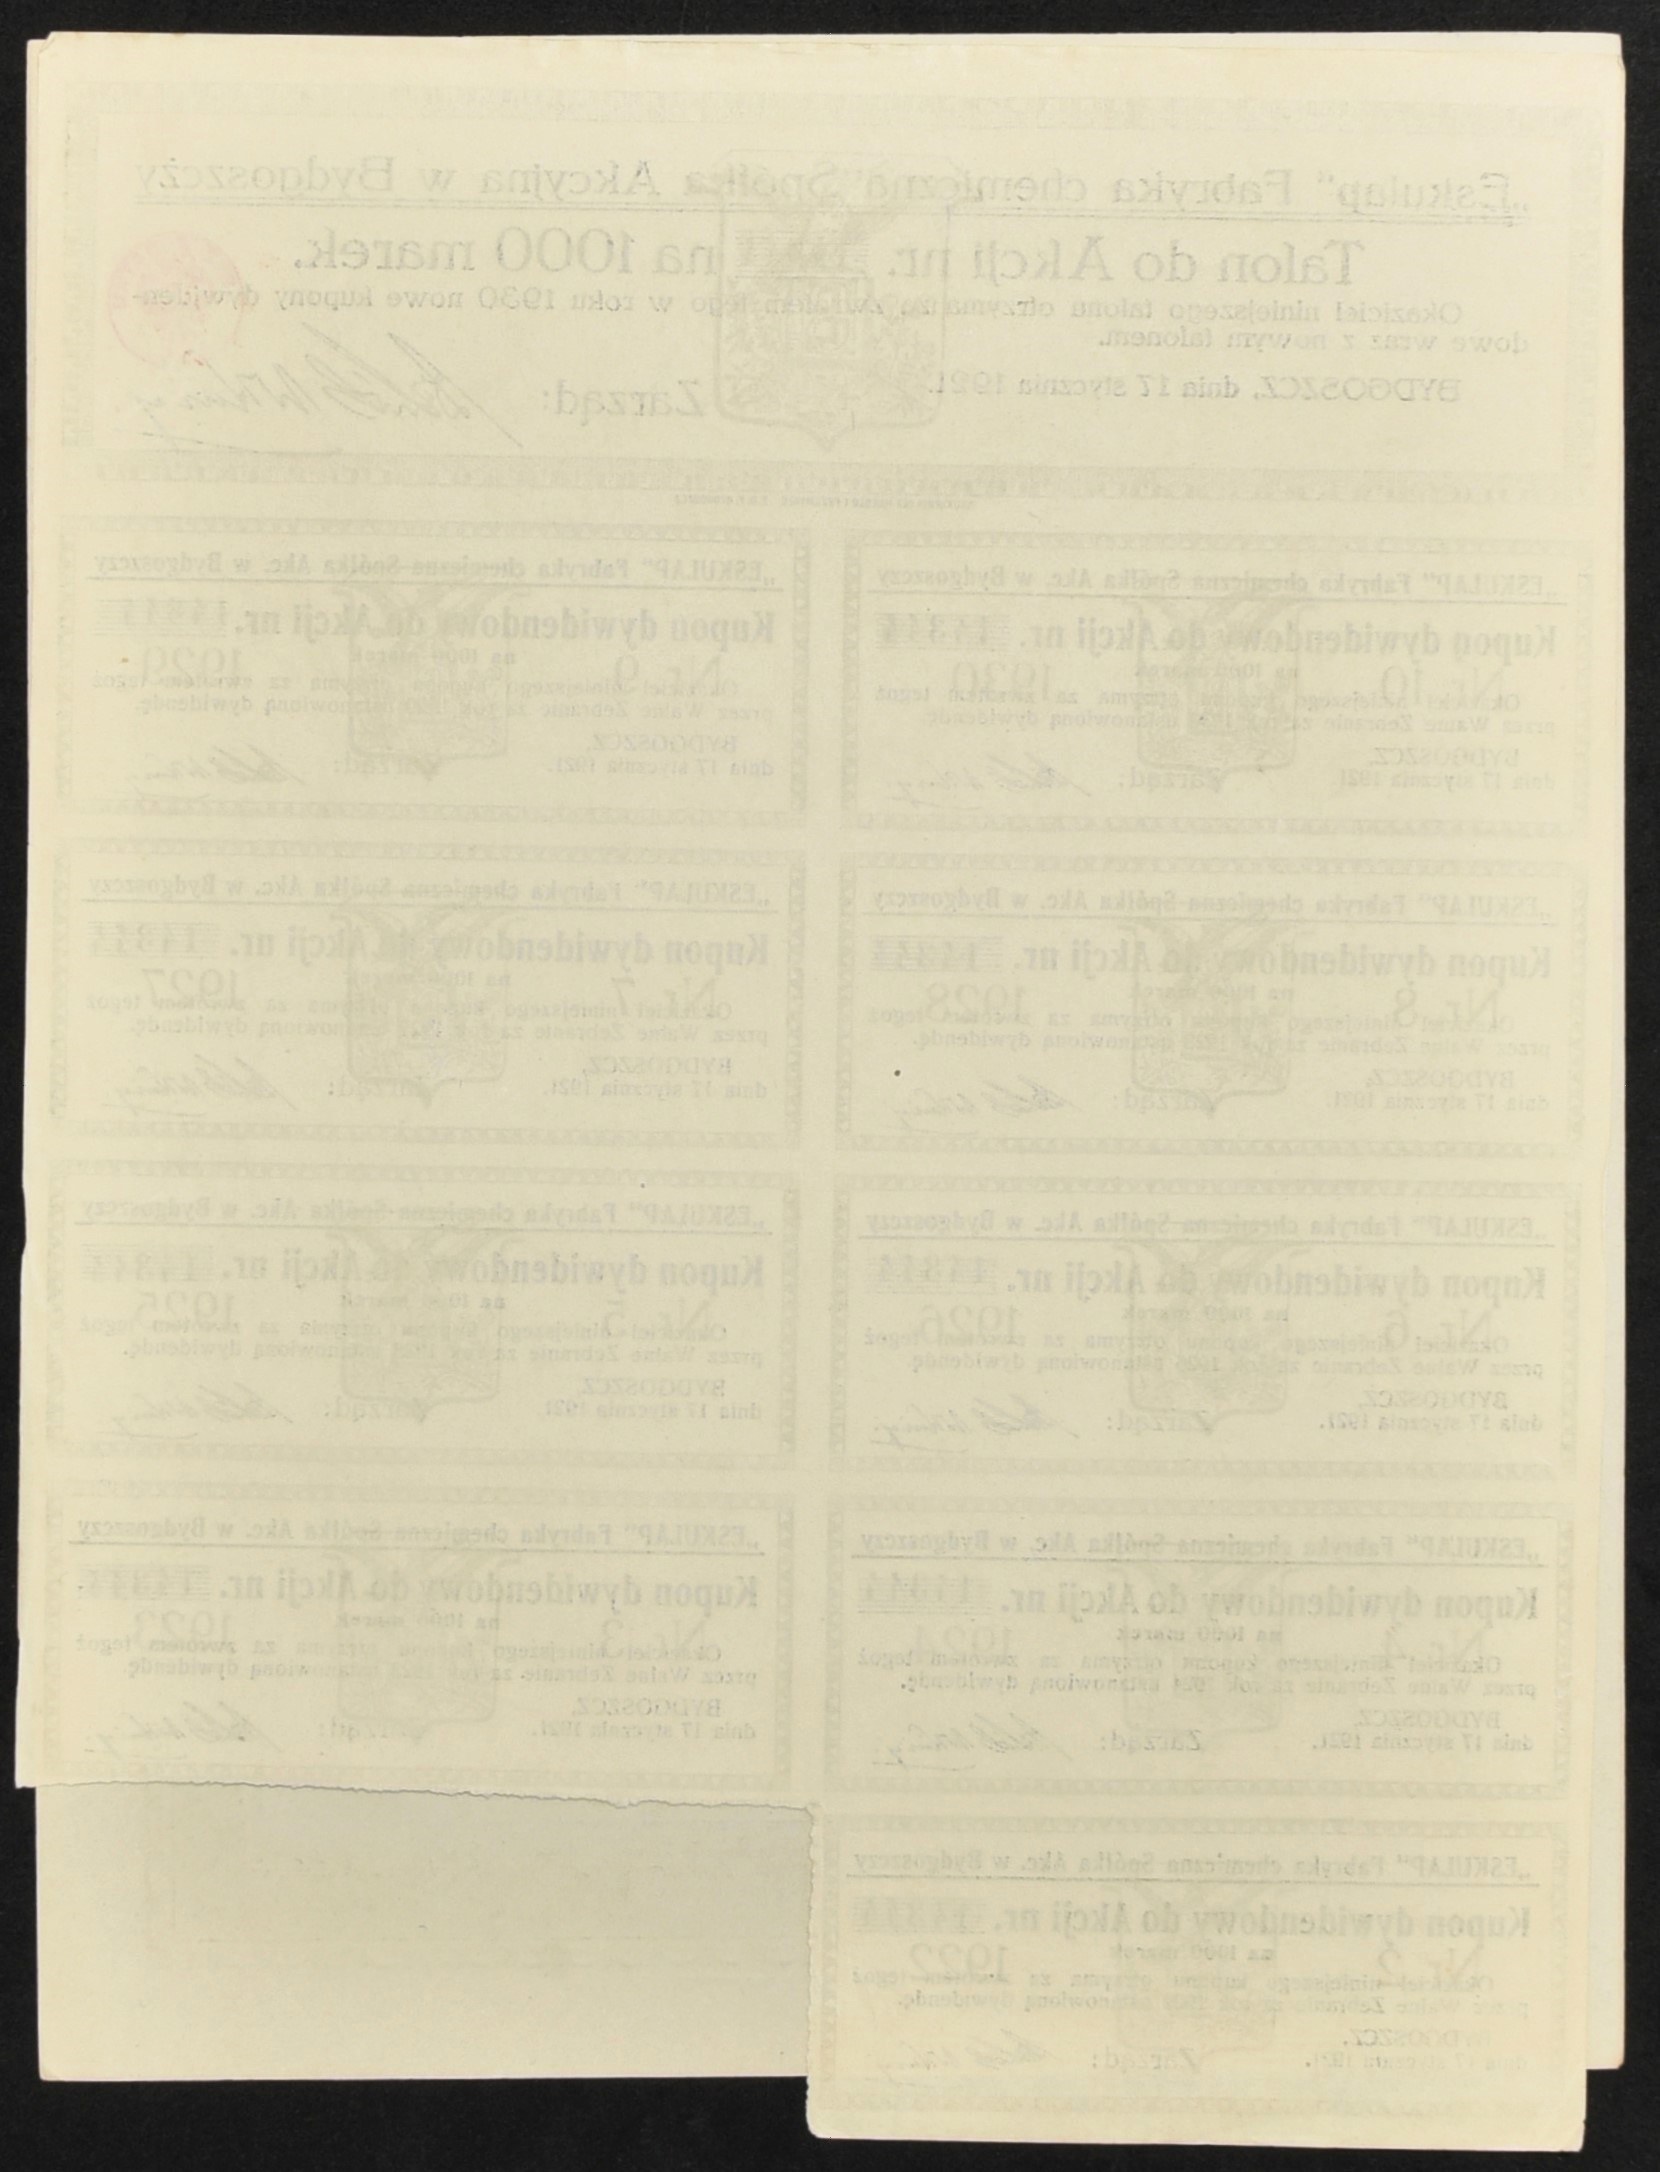 „Eskulap" Fabryka chemiczna Spółka Akcyjna w Bydgoszczy
Talon do Akcji nr. na 1000 marek.
Okaziciel niniejszego talonu otrzyma za zwrotem tego w roku 1930 nowe kupony dywiden-
dowe wraz z nowym talonem.
BYDGOSZCZ, dnia 17 stycznia 1921.
Zarząd:
„ESKULAP" Fabryka chemiczna Spółka Akc. w Bydgoszczy
Kupon dywidendowy do Akcji nr. 14344
na 1000 marek
Nr. 10 1930
Okaziciel niniejszego kuponu otrzyma za zwrotem tegoż
przez Walne Zebranie za rok ustanowioną dywidendę
BYDGOSZCZ,
dnia 17 stycznia 1921 Zarząd:
„ESKULAP" Fabryka chemiczna Spółka Akc. w Bydgoszczy
Kupon dywidendowy do Akcji nr. 14344
na 1000 marek
Nr. 9 1929
Okaziciel niniejszego kuponu otrzyma za zwrotem tegoż
przez Walne Zebranie za rok ustanowioną dywidendę.
BYDGOSZCZ,
dnia 17 stycznia 1921. Zarząd:
„ESKULAP" Fabryka chemiczna Spółka Akc. w Bydgoszczy
Kupon dywidendowy do Akcji nr. 14344
na 1000 marek
Nr. 8 1928
Okaziciel niniejszego kuponu otrzyma za zwrotem tegoż
przez Walne Zebranie za rok 1928 ustanowioną dywidendę.
BYDGOSZCZ,
dnia 17 stycznia 1921. Zarząd:
„ESKULAP" Fabryka chemiczna Spółka Akc. w Bydgoszczy
Kupon dywidendowy do Akcji nr. 14344
na 1000 marek
Nr. 7 1927
Okaziciel niniejszego kuponu otrzyma za zwrotem tegoż
przez Walne Zebranie za rok ustanowioną dywidendę.
BYDGOSZCZ,
dnia 17 stycznia 1921. Zarząd:
„ESKULAP" Fabryka chemiczna Spółka Akc. w Bydgoszczy
Kupon dywidendowy do Akcji nr. 14344
na 1000 marek
Nr. 6 1926
Okaziciel niniejszego kuponu otrzyma za zwrotem tegoż
przez Walne Zebranie za rok 1926 ustanowioną dywidendę
BYDGOSZCZ,
dnia 17 stycznia 1921. Zarząd:
„ESKULAP" Fabryka chemiczna Spółka Akc. w Bydgoszczy
Kupon dywidendowy do Akcji nr. 14344
na 1000 marek
Nr. 5 1925
Okaziciel niniejszego kuponu otrzyma za zwrotem tegoż
przez Walne Zebranie za rok ustanowioną dywidendę.
BYDGOSZCZ,
dnia 17 stycznia 1921. Zarząd:
„ESKULAP" Fabryka chemiczna Spółka Akc. w Bydgoszczy
Kupon dywidendowy do Akcji nr. 14344
na 1000 marek
Nr. 4 1924
Okaziciel niniejszego kuponu otrzyma za zwrotem tegoż
przez Walne Zebranie za rok 1924 ustanowioną dywidendę.
BYDGOSZCZ,
dnia 17 stycznia 1921. Zarząd:
„ESKULAP" Fabryka chemiczna Spółka Akc. w Bydgoszczy
Kupon dywidendowy do Akcji nr. 14344
na 1000 marek
Nr. 3 1923
Okaziciel niniejszego kuponu otrzyma za zwrotem tegoż
przez Walne Zebranie za rok ustanowioną dywidendę.
BYDGOSZCZ,
dnia 17 stycznia 1921. Zarząd:
„ESKULAP" Fabryka chemiczna Spółka Akc. w Bydgoszczy
Kupon dywidendowy do Akcji nr. 14344
na 1000 marek
Nr. 2 1922
Okaziciel niniejszego kuponu otrzyma za zwrotem tegoż
przez Walne Zebranie za rok ustanowioną dywidendę.
BYDGOSZCZ,
dnia 17 stycznia 1921. Zarząd: